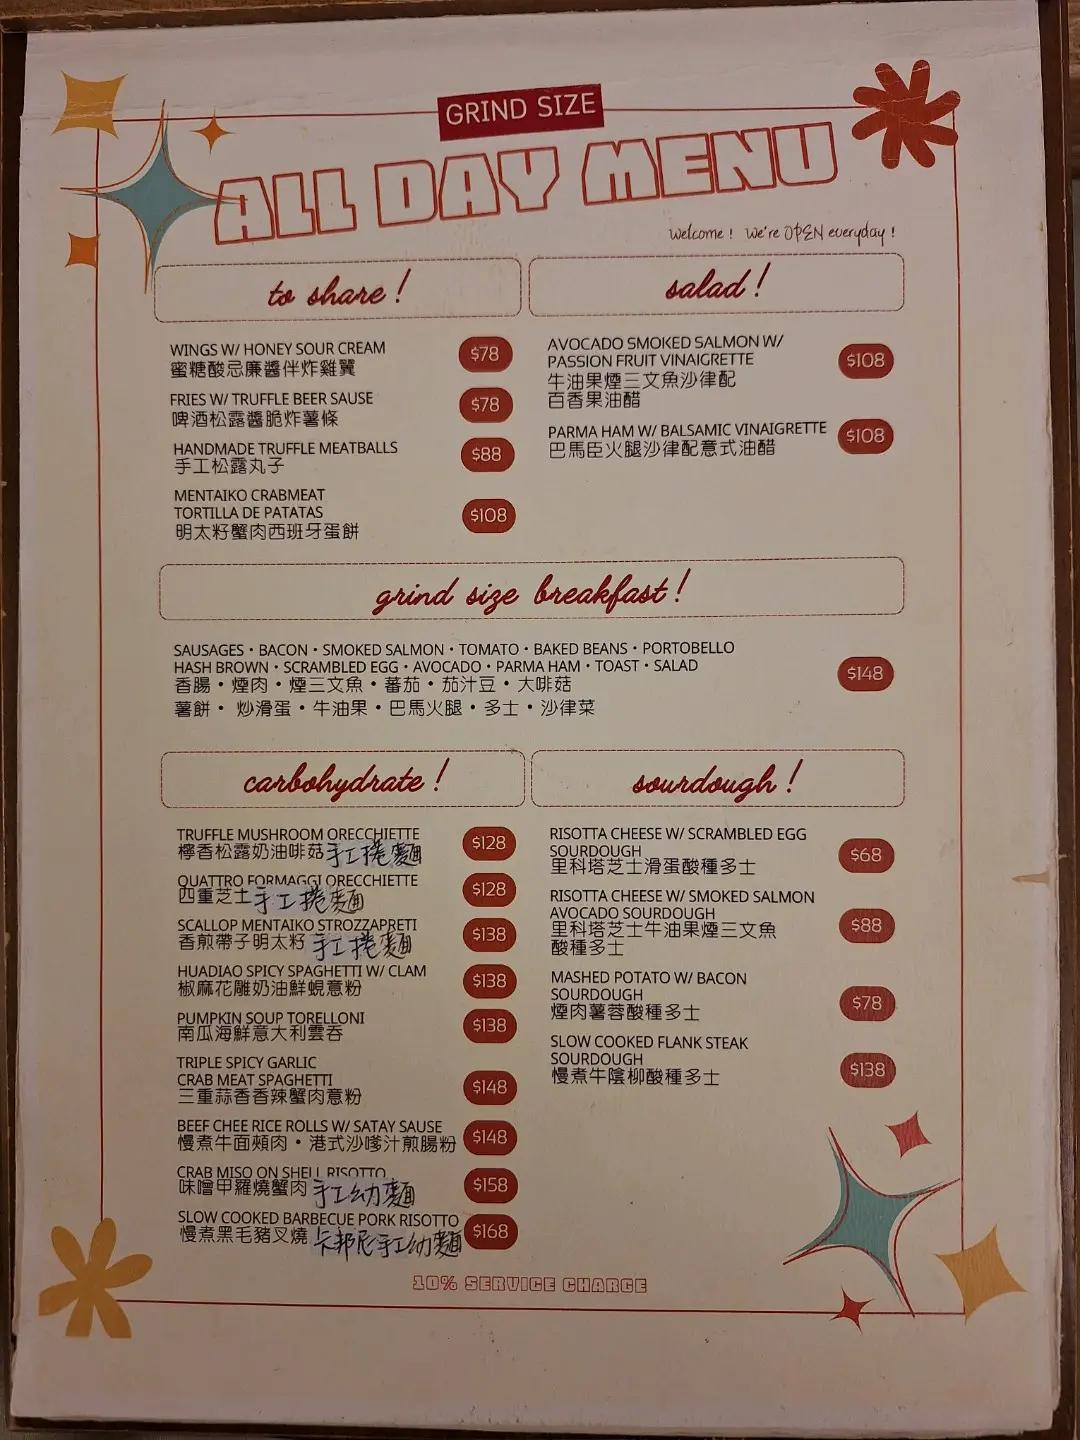 GRIND SIZE
ALL DAY MENU
welcome! we're OPEN everyday!
to share!
WINGS W/ HONEY SOUR CREAM $78
蜜糖酸忌廉醬伴炸雞翼
FRIES W/ TRUFFLE BEER SAUSE $78
啤酒松露醬脆炸薯條
HANDMADE TRUFFLE MEATBALLS $88
手工松露丸子
MENTAIKO CRABMEAT
TORTILLA DE PATATAS $108
明太籽蟹肉西班牙蛋餅
salad!
AVOCADO SMOKED SALMON W/
PASSION FRUIT VINAIGRETTE $108
牛油果煙三文魚沙律配
百香果油醋
PARMA HAM W/ BALSAMIC VINAIGRETTE $108
巴馬臣火腿沙律配意式油醋
grind size breakfast!
SAUSAGES • BACON • SMOKED SALMON • TOMATO • BAKED BEANS • PORTOBELLO
HASH BROWN • SCRAMBLED EGG • AVOCADO • PARMA HAM • TOAST • SALAD $148
香腸 • 煙肉 • 煙三文魚 • 蕃茄 • 茄汁豆 • 大啡菇
薯餅 • 炒滑蛋 • 牛油果 • 巴馬火腿 • 多士 • 沙律菜
carbohydrate!
TRUFFLE MUSHROOM ORECCHIETTE $128
檸香松露奶油啡菇手工捲麵
QUATTRO FORMAGGI ORECCHIETTE $128
四重芝士手工捲麵
SCALLOP MENTAIKO STROZZAPRETI $138
香煎帶子明太籽手工捲麵
HUADIAO SPICY SPAGHETTI W/ CLAM $138
椒麻花雕奶油鮮蜆意粉
PUMPKIN SOUP TORELLONI $138
南瓜海鮮意大利雲吞
TRIPLE SPICY GARLIC
CRAB MEAT SPAGHETTI $148
三重蒜香香辣蟹肉意粉
BEEF CHEE RICE ROLLS W/ SATAY SAUSE $148
慢煮牛面頰肉 • 港式沙嗲汁煎腸粉
CRAB MISO ON SHELL RISOTTO $158
味噌甲羅燒蟹肉手工幼麵
SLOW COOKED BARBECUE PORK RISOTTO $168
慢煮黑毛豬叉燒卡邦尼手工幼麵
sourdough!
RISOTTA CHEESE W/ SCRAMBLED EGG
SOURDOUGH $68
里科塔芝士滑蛋酸種多士
RISOTTA CHEESE W/ SMOKED SALMON
AVOCADO SOURDOUGH $88
里科塔芝士牛油果煙三文魚
酸種多士
MASHED POTATO W/ BACON
SOURDOUGH $78
煙肉薯蓉酸種多士
SLOW COOKED FLANK STEAK
SOURDOUGH $138
慢煮牛陰柳酸種多士
10% SERVICE CHARGE